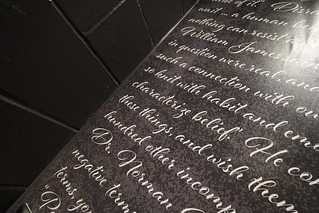 most of a Disra
must a human b
nothing can resist
William James
in question were real, and
such a connection with ou
so knit with habit and emo
characterize belief. He con
these things, and wish them
hundred other incomp
Dr. Norman
negative terms
terms yo
"P